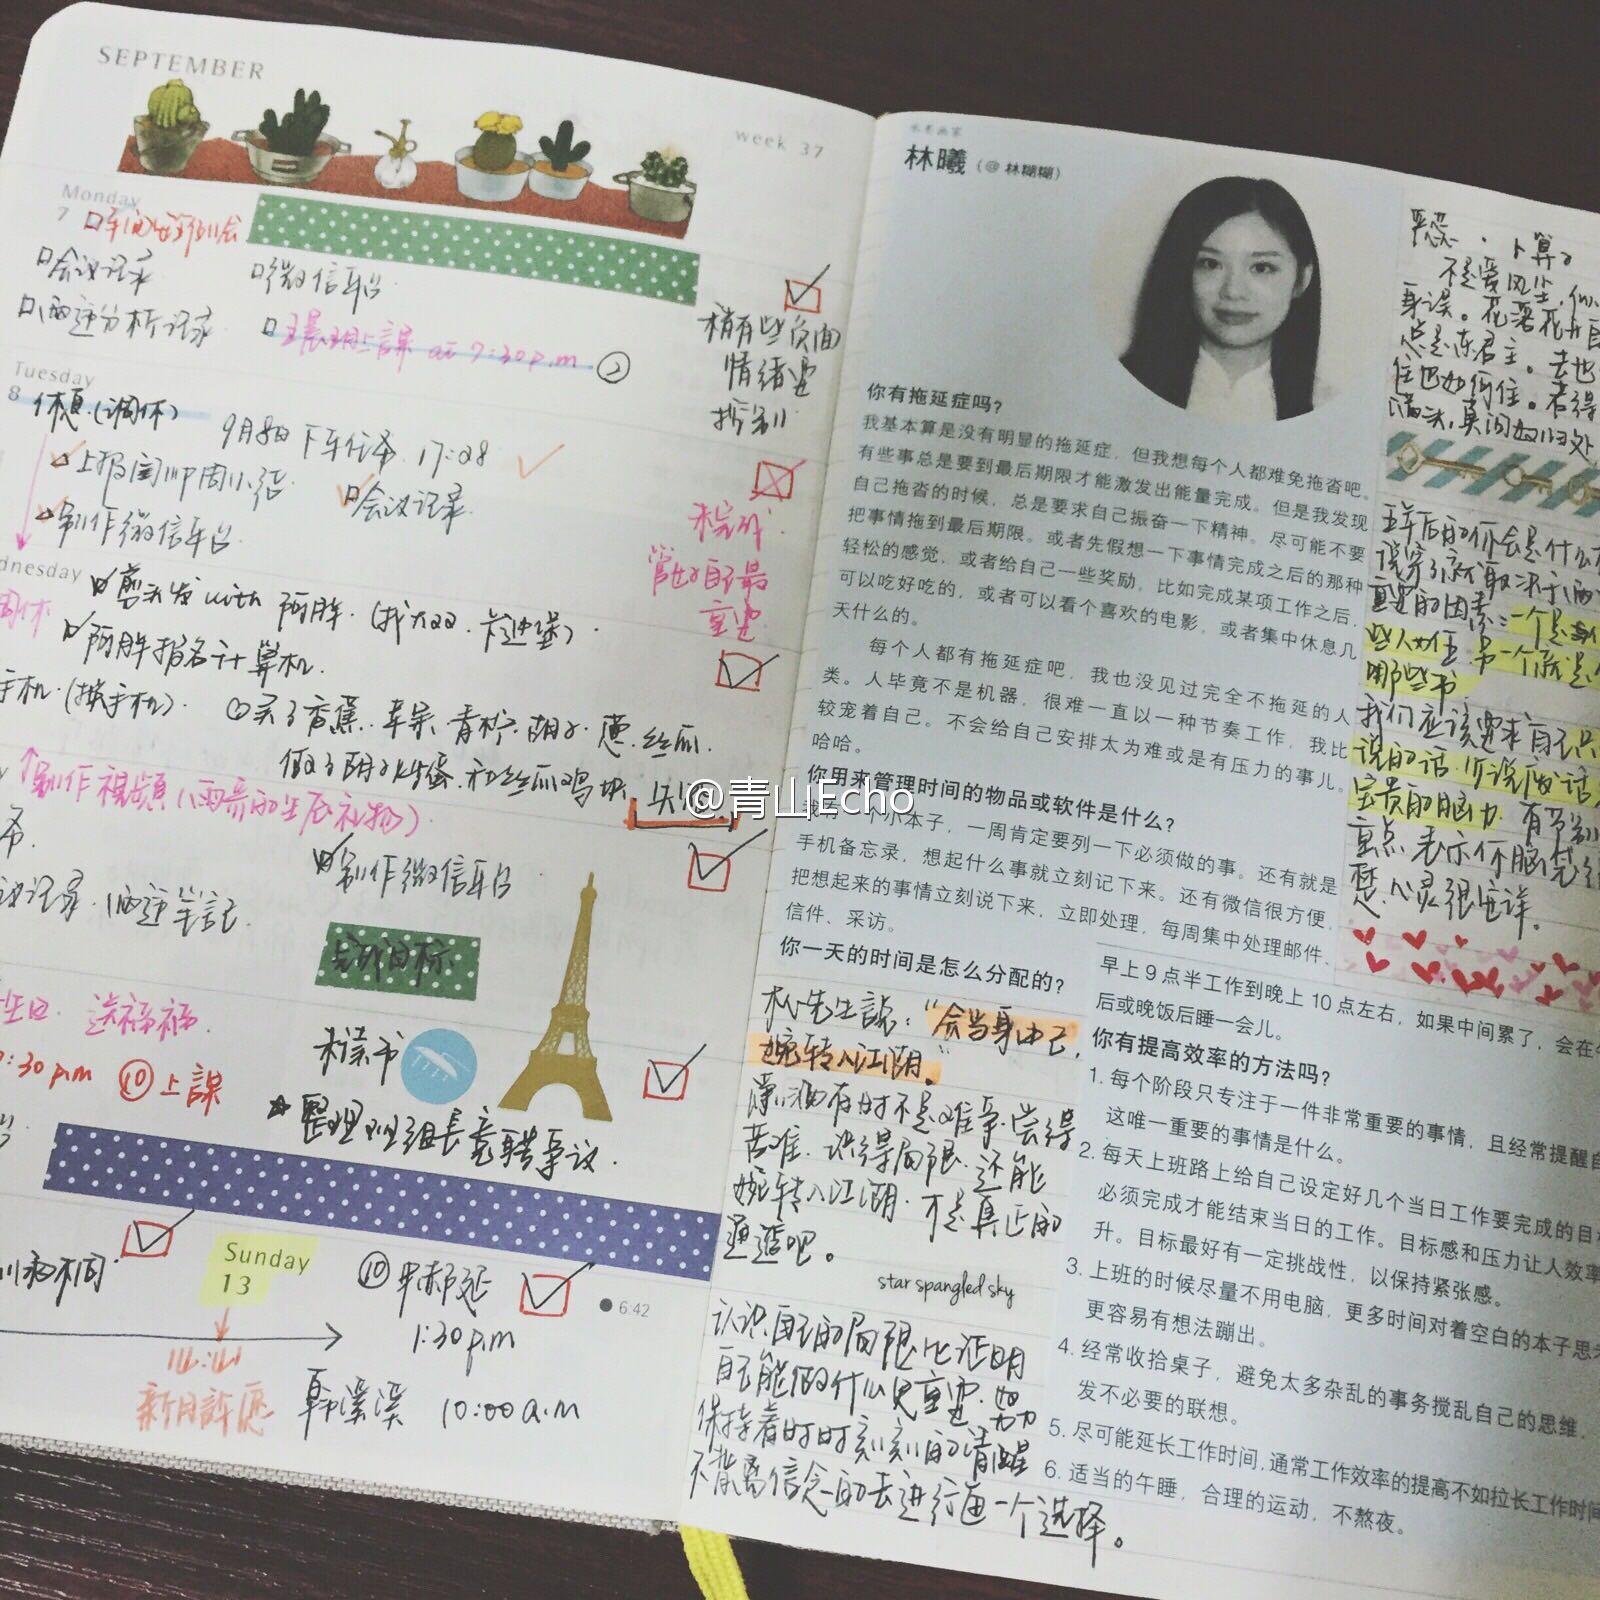 SEPTEMBER
week 37
Monday
7
口会议记录
口微信平台
at 7:30p.m
稍有些负面
情绪要
拆别
Tuesday
8 休息(调休)
9月8日 下午任务 17:28
会议记录
制作微信平台
管好自己最
重要
dnesday
剪头发 with 阿胖.
阿胖报名计算机.
手机.(换手机).
买了香蕉.苹果.青柠.茄子.葱.丝瓜.
制作視頻
制作微信平台
完成目标
生日 送福福
:30 p.m ⑩上課
整理班组长竞聘事议.
Sunday
13
6:42
1:30 p.m
新月許愿
韩溪溪 10:00 a.m
@青山Echo
水彩画家
林曦(@林糊糊)
你有拖延症吗?
我基本算是没有明显的拖延症,但我想每个人都难免拖沓吧。
有些事总是要到最后期限才能激发出能量完成。但是我发现
自己拖沓的时候,总是要求自己振奋一下精神。尽可能不要
把事情拖到最后期限。或者先假想一下事情完成之后的那种
轻松的感觉,或者给自己一些奖励,比如完成某项工作之后,
可以吃好吃的,或者可以看个喜欢的电影,或者集中休息几
天什么的。
每个人都有拖延症吧,我也没见过完全不拖延的人
类。人毕竟不是机器,很难一直以一种节奏工作,我比
较宠着自己。不会给自己安排太为难或是有压力的事儿。
哈哈。
你用来管理时间的物品或软件是什么?
我有一个小本子,一周肯定要列一下必须做的事。还有就是
手机备忘录,想起什么事就立刻记下来。还有微信很方便,
把想起来的事情立刻说下来,立即处理,每周集中处理邮件、
信件、采访。
你一天的时间是怎么分配的?
早上9点半工作到晚上10点左右,如果中间累了,会在午
后或晚饭后睡一会儿。
你有提高效率的方法吗?
1. 每个阶段只专注于一件非常重要的事情,且经常提醒自
这唯一重要的事情是什么。
2. 每天上班路上给自己设定好几个当日工作要完成的目标
必须完成才能结束当日的工作。目标感和压力让人效率
升。目标最好有一定挑战性,以保持紧张感。
3. 上班的时候尽量不用电脑,更多时间对着空白的本子思考
更容易有想法蹦出。
4. 经常收拾桌子,避免太多杂乱的事务搅乱自己的思维,
发不必要的联想。
5. 尽可能延长工作时间,通常工作效率的提高不如拉长工作时间
6. 适当的午睡,合理的运动,不熬夜。
先生說:“会当身由己,
婉转入江湖。”
有时不是难事.尝得
苦难.识得局限.还能
婉转入江湖.才是真正的
通透吧。
star spangled sky
认识自己的局限比证明
自己能做什么更重要.努力
保持着时时刻刻的清醒
不背离信念的去进行每一个选择。
严蕊·卜算子
不是爱风尘,似
身误。花落花开自
总是东君主。去也
住也如何住。若得
满头,莫问奴归处
五年后的你会是什么
说穿了就取决于两
重要的因素:一个是
些人相处.另一个就是
哪些书
我们应该要求自己只
说的话.听说废话
宝贵的脑力.有节制
重点.表示你脑袋清
楚.心灵很安详.